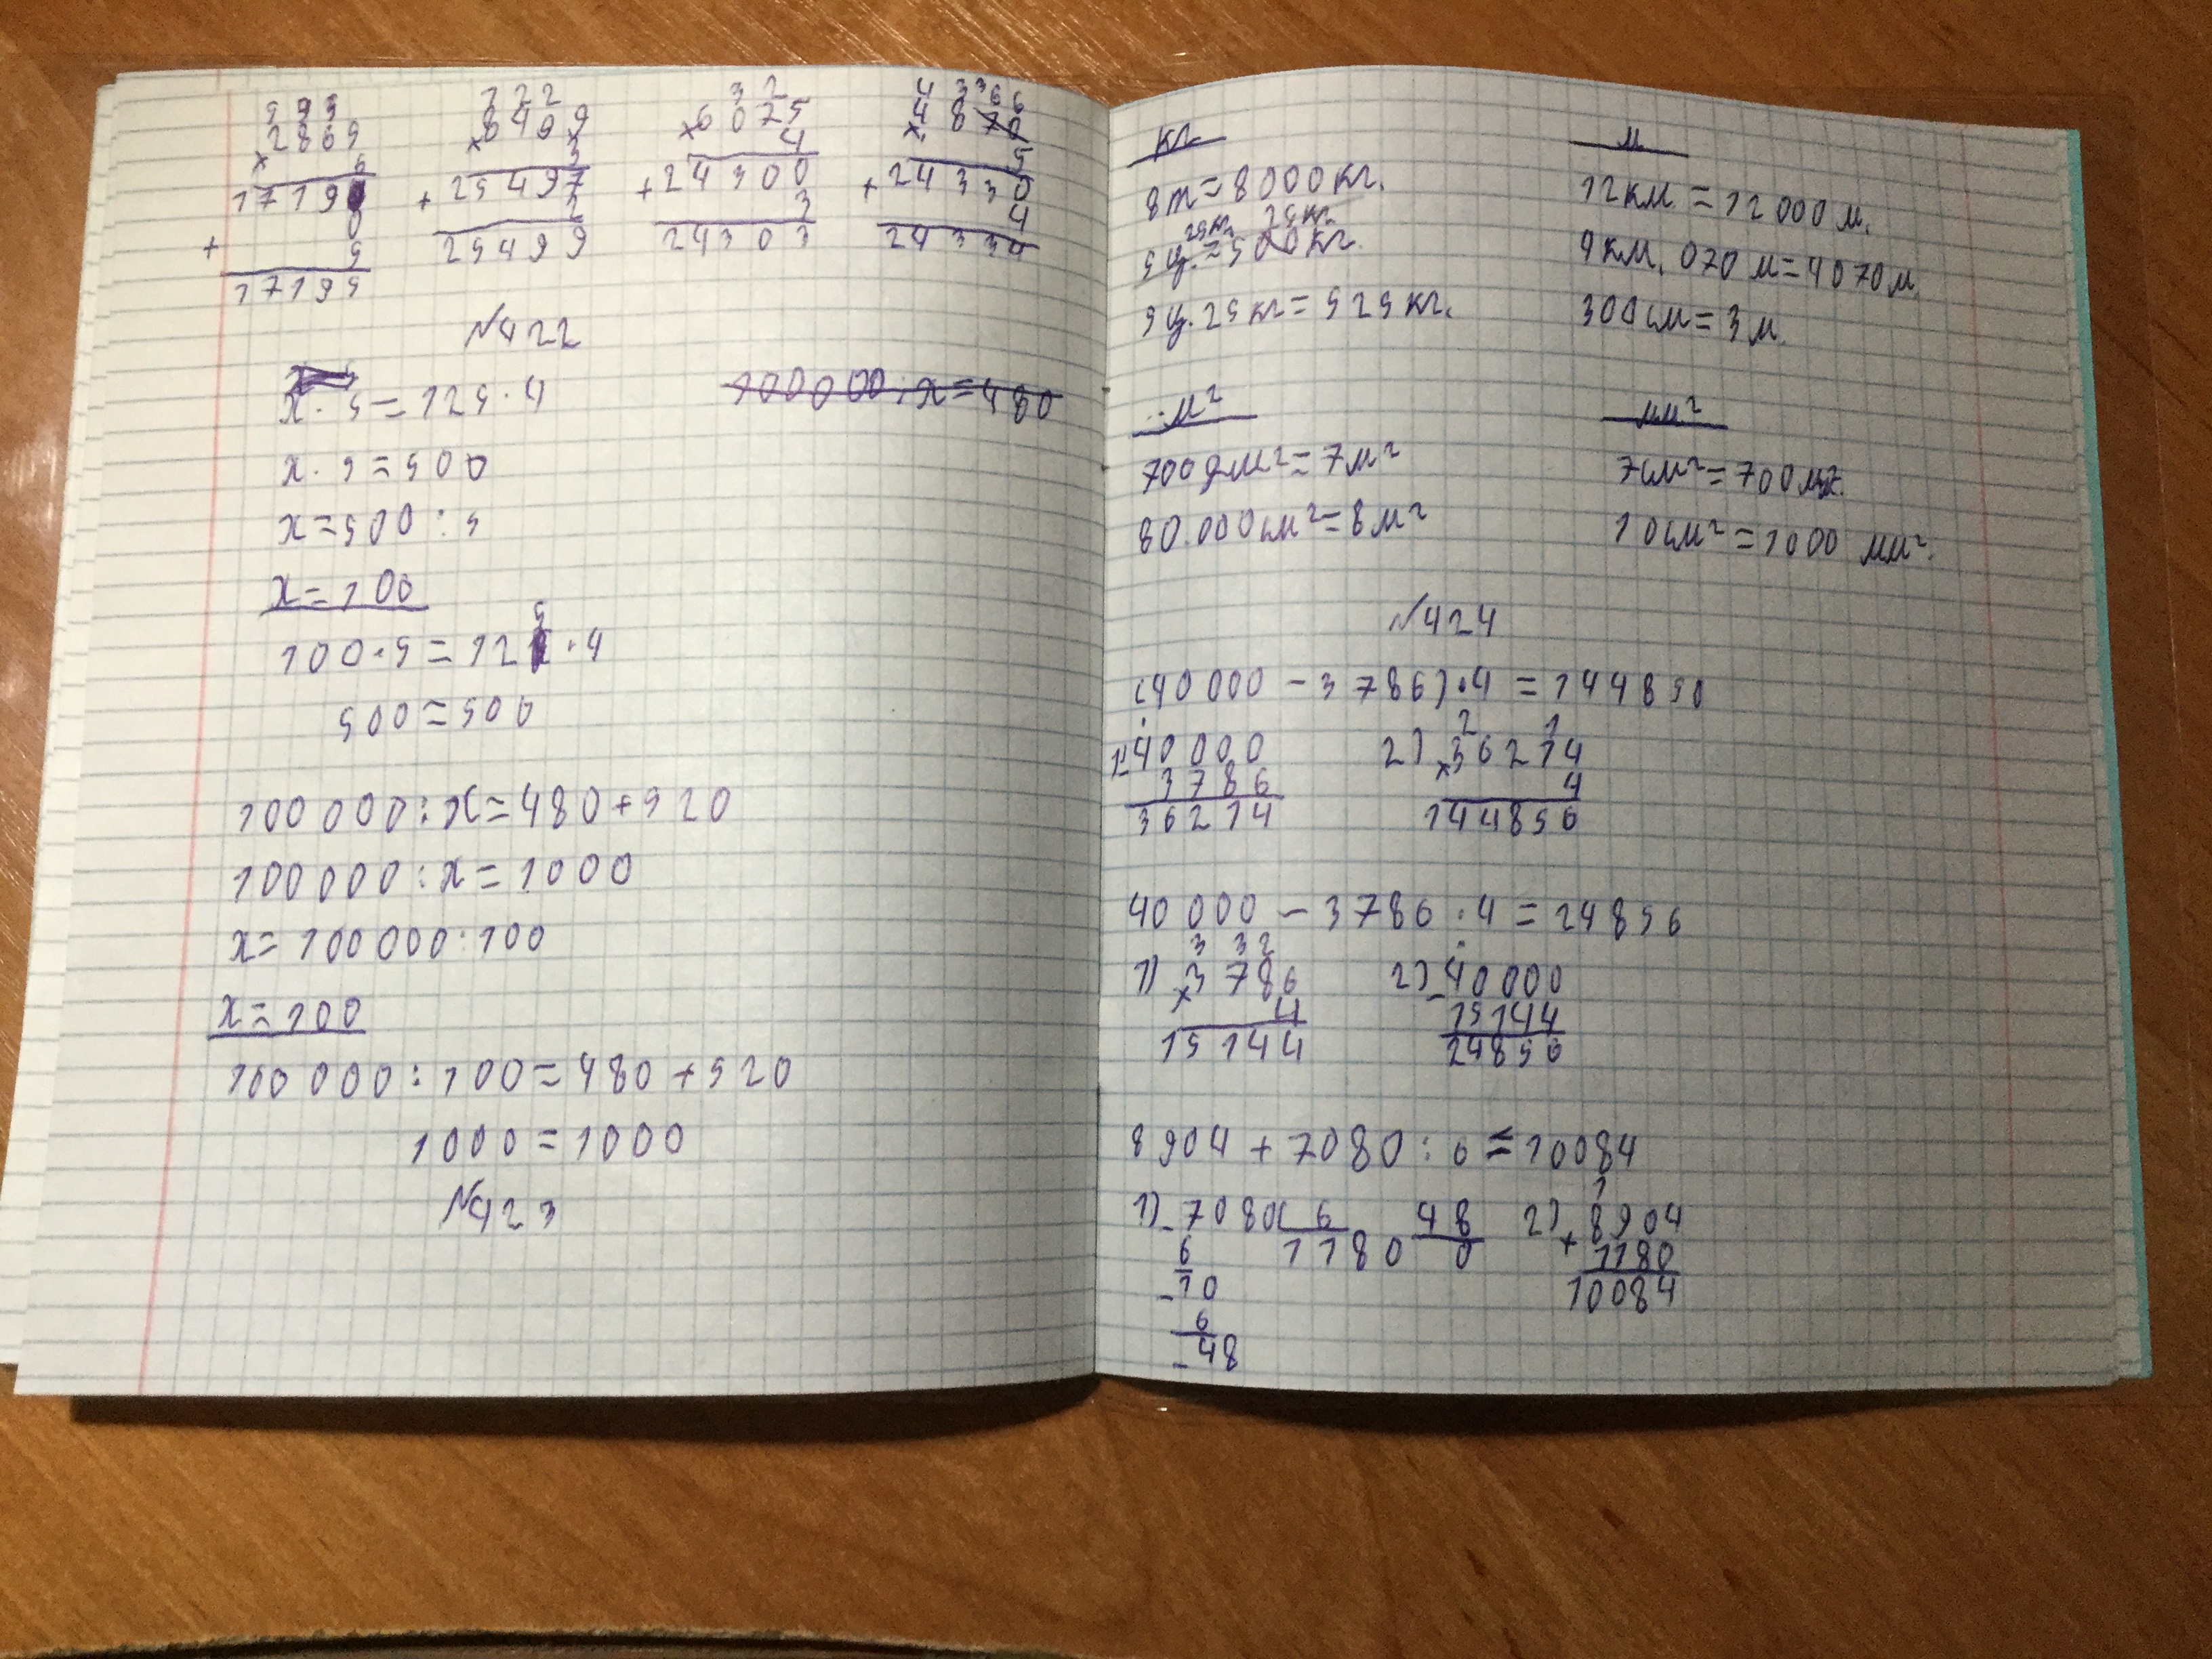 5 9 3
2865
× 6
17190
+ 5
17195
1 2 2
8499
× 3
+ 25497
2
25499
3 2
× 6075
4
+ 24300
3
24303
4 3 3 6 6
× 4 8 7 0
5
+ 24330
4
24334
№422
x · 5 = 125 · 4
100000 : x = 480
x · 5 = 500
x = 500 : 5
x = 100
100 · 5 = 125 · 4
500 = 500
100 000 : x = 480 + 520
100000 : x = 1000
x = 100 000 : 100
x = 100
100 000 : 100 = 480 + 520
1000 = 1000
№423
кг
8т = 8000 кг.
25кг. 25кг.
5ц. = 500кг.
5ц. 25кг = 525кг.
м
12км = 12 000 м.
4км. 070 м = 4070м
300см = 3м.
м²
700дм² = 7м²
80.000см² = 8м²
мм²
7см² = 700мм².
10см² = 1000 мм².
№424
(40 000 - 3 786) · 4 = 144850
1) - 40000
3786
36214
2 1
2) × 36214
4
144856
40 000 - 3786 · 4 = 24856
3 3 2
1) × 3786
4
15144
2) - 40000
15144
24856
8904 + 7080 : 6 = 10084
1) - 7080 6
6 1180
- 10
6
- 48
48
0
1
2) + 8904
1180
10084